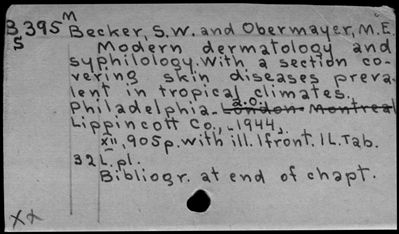 B395 M Becker, S.W. and Obermayer, M.E.
5 Modern dermatology and
syphilology. With a section co-
vering skin diseases preva-
lent in tropical climates.
Philadelphia - a.o. London - Montreal
Lippincott Co., 1944.
XII, 905p. with ill. 1front. 1L. Tab.
32L. pl.
Bibliogr. at end of chapt.
XX